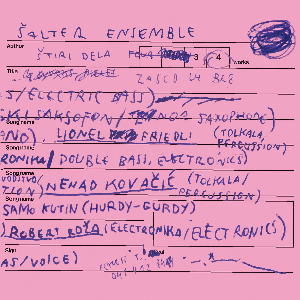 ŠALTER ENSEMBLE
Author
ŠTIRI DELA
3 4
works
Title
ZASEDA
S/ELECTRIC BASS)
SKI SAKSOFON/TENOR SAXOPHONE)
Song name
AND), LIONEL FRIEDLI (TOLKALA,
PERCUSSION)
Song name
RONIKA/DOUBLE BASS, ELECTRONICS)
Song name
VODSTVO/
TION), NENAD KOVAČIĆ (TOLKALA/
PERCUSSION)
Song name
SAMO KUTIN (HURDY-GURDY)
), ROBERT ROŽA (ELECTRONIKA/ELECTRONICS)
Sign
AS/VOICE)